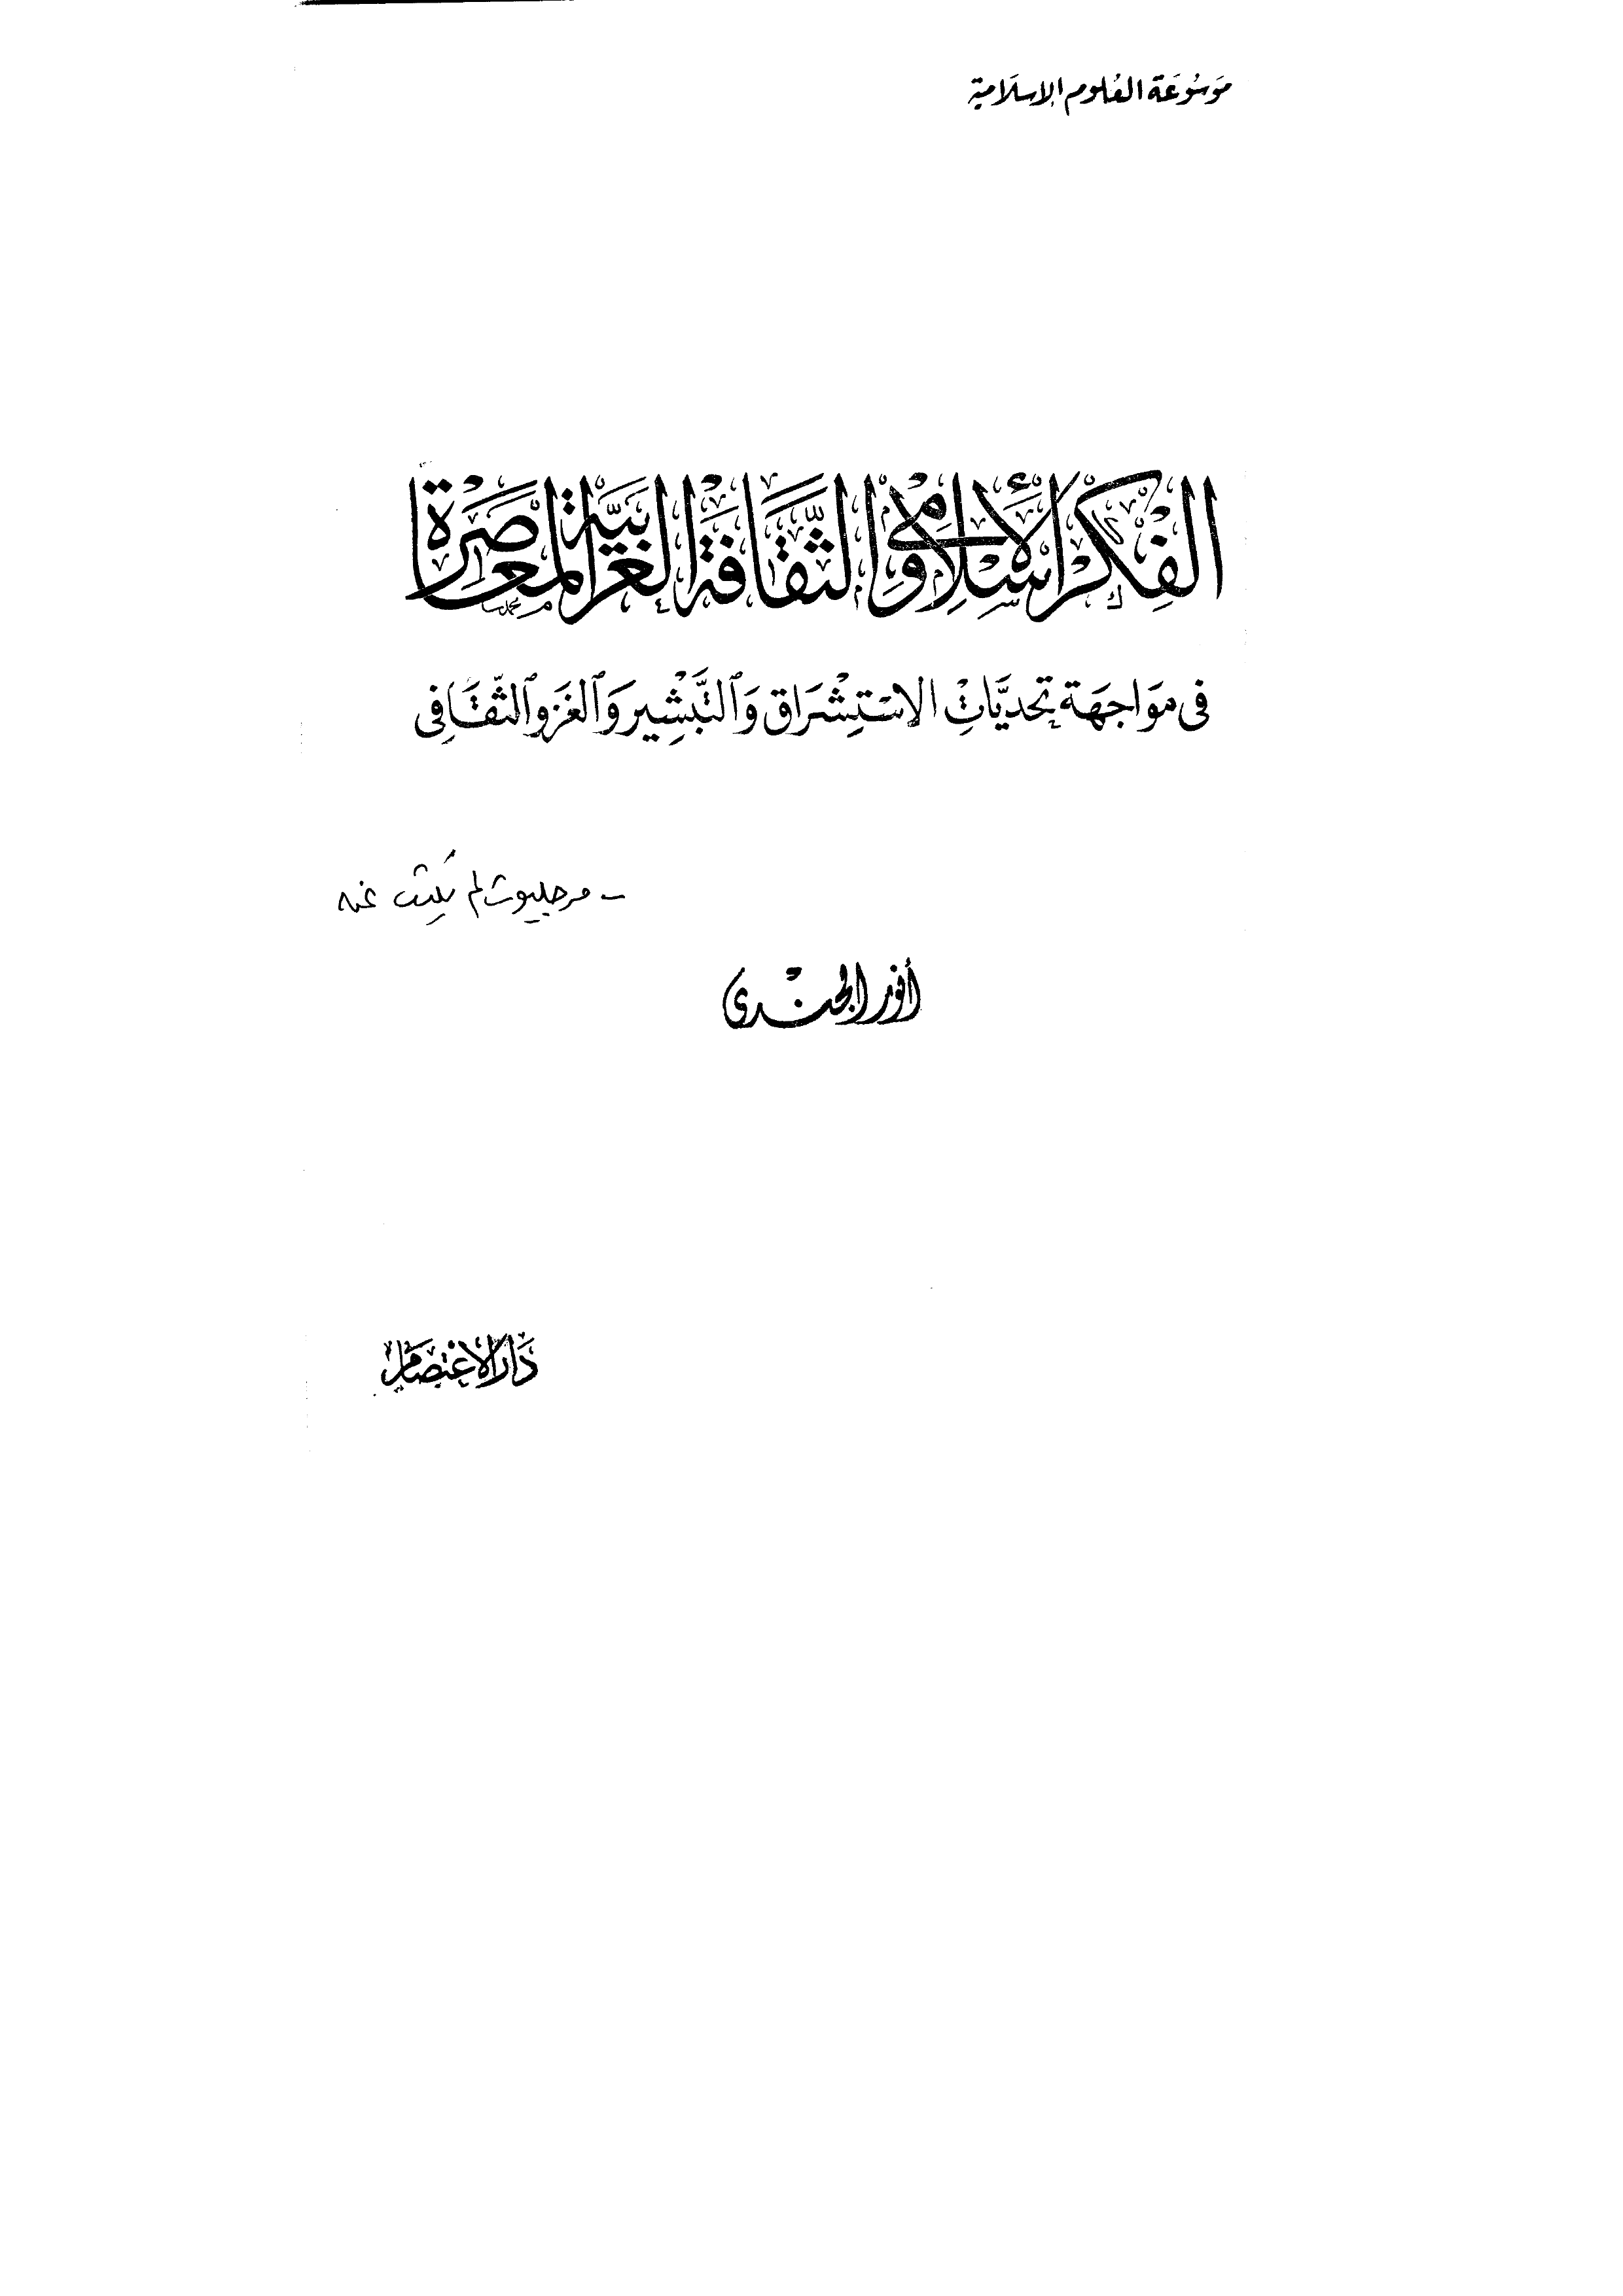 مَوسُوعَة العُلوم الإسلَامية
الفِكرُ الإسْلَامِى وَالثَّقَافَة الغَرْبيَّة المعَاصِرَة
فى موَاجهَة تحديَّاتِ الاسْتِشْرَاق وَالتَّبْشِير وَالغَزو الثَّقَافِى
- مرجليوث لم يكتب عنه
أنور الجندى
دَار الاعْتِصَام